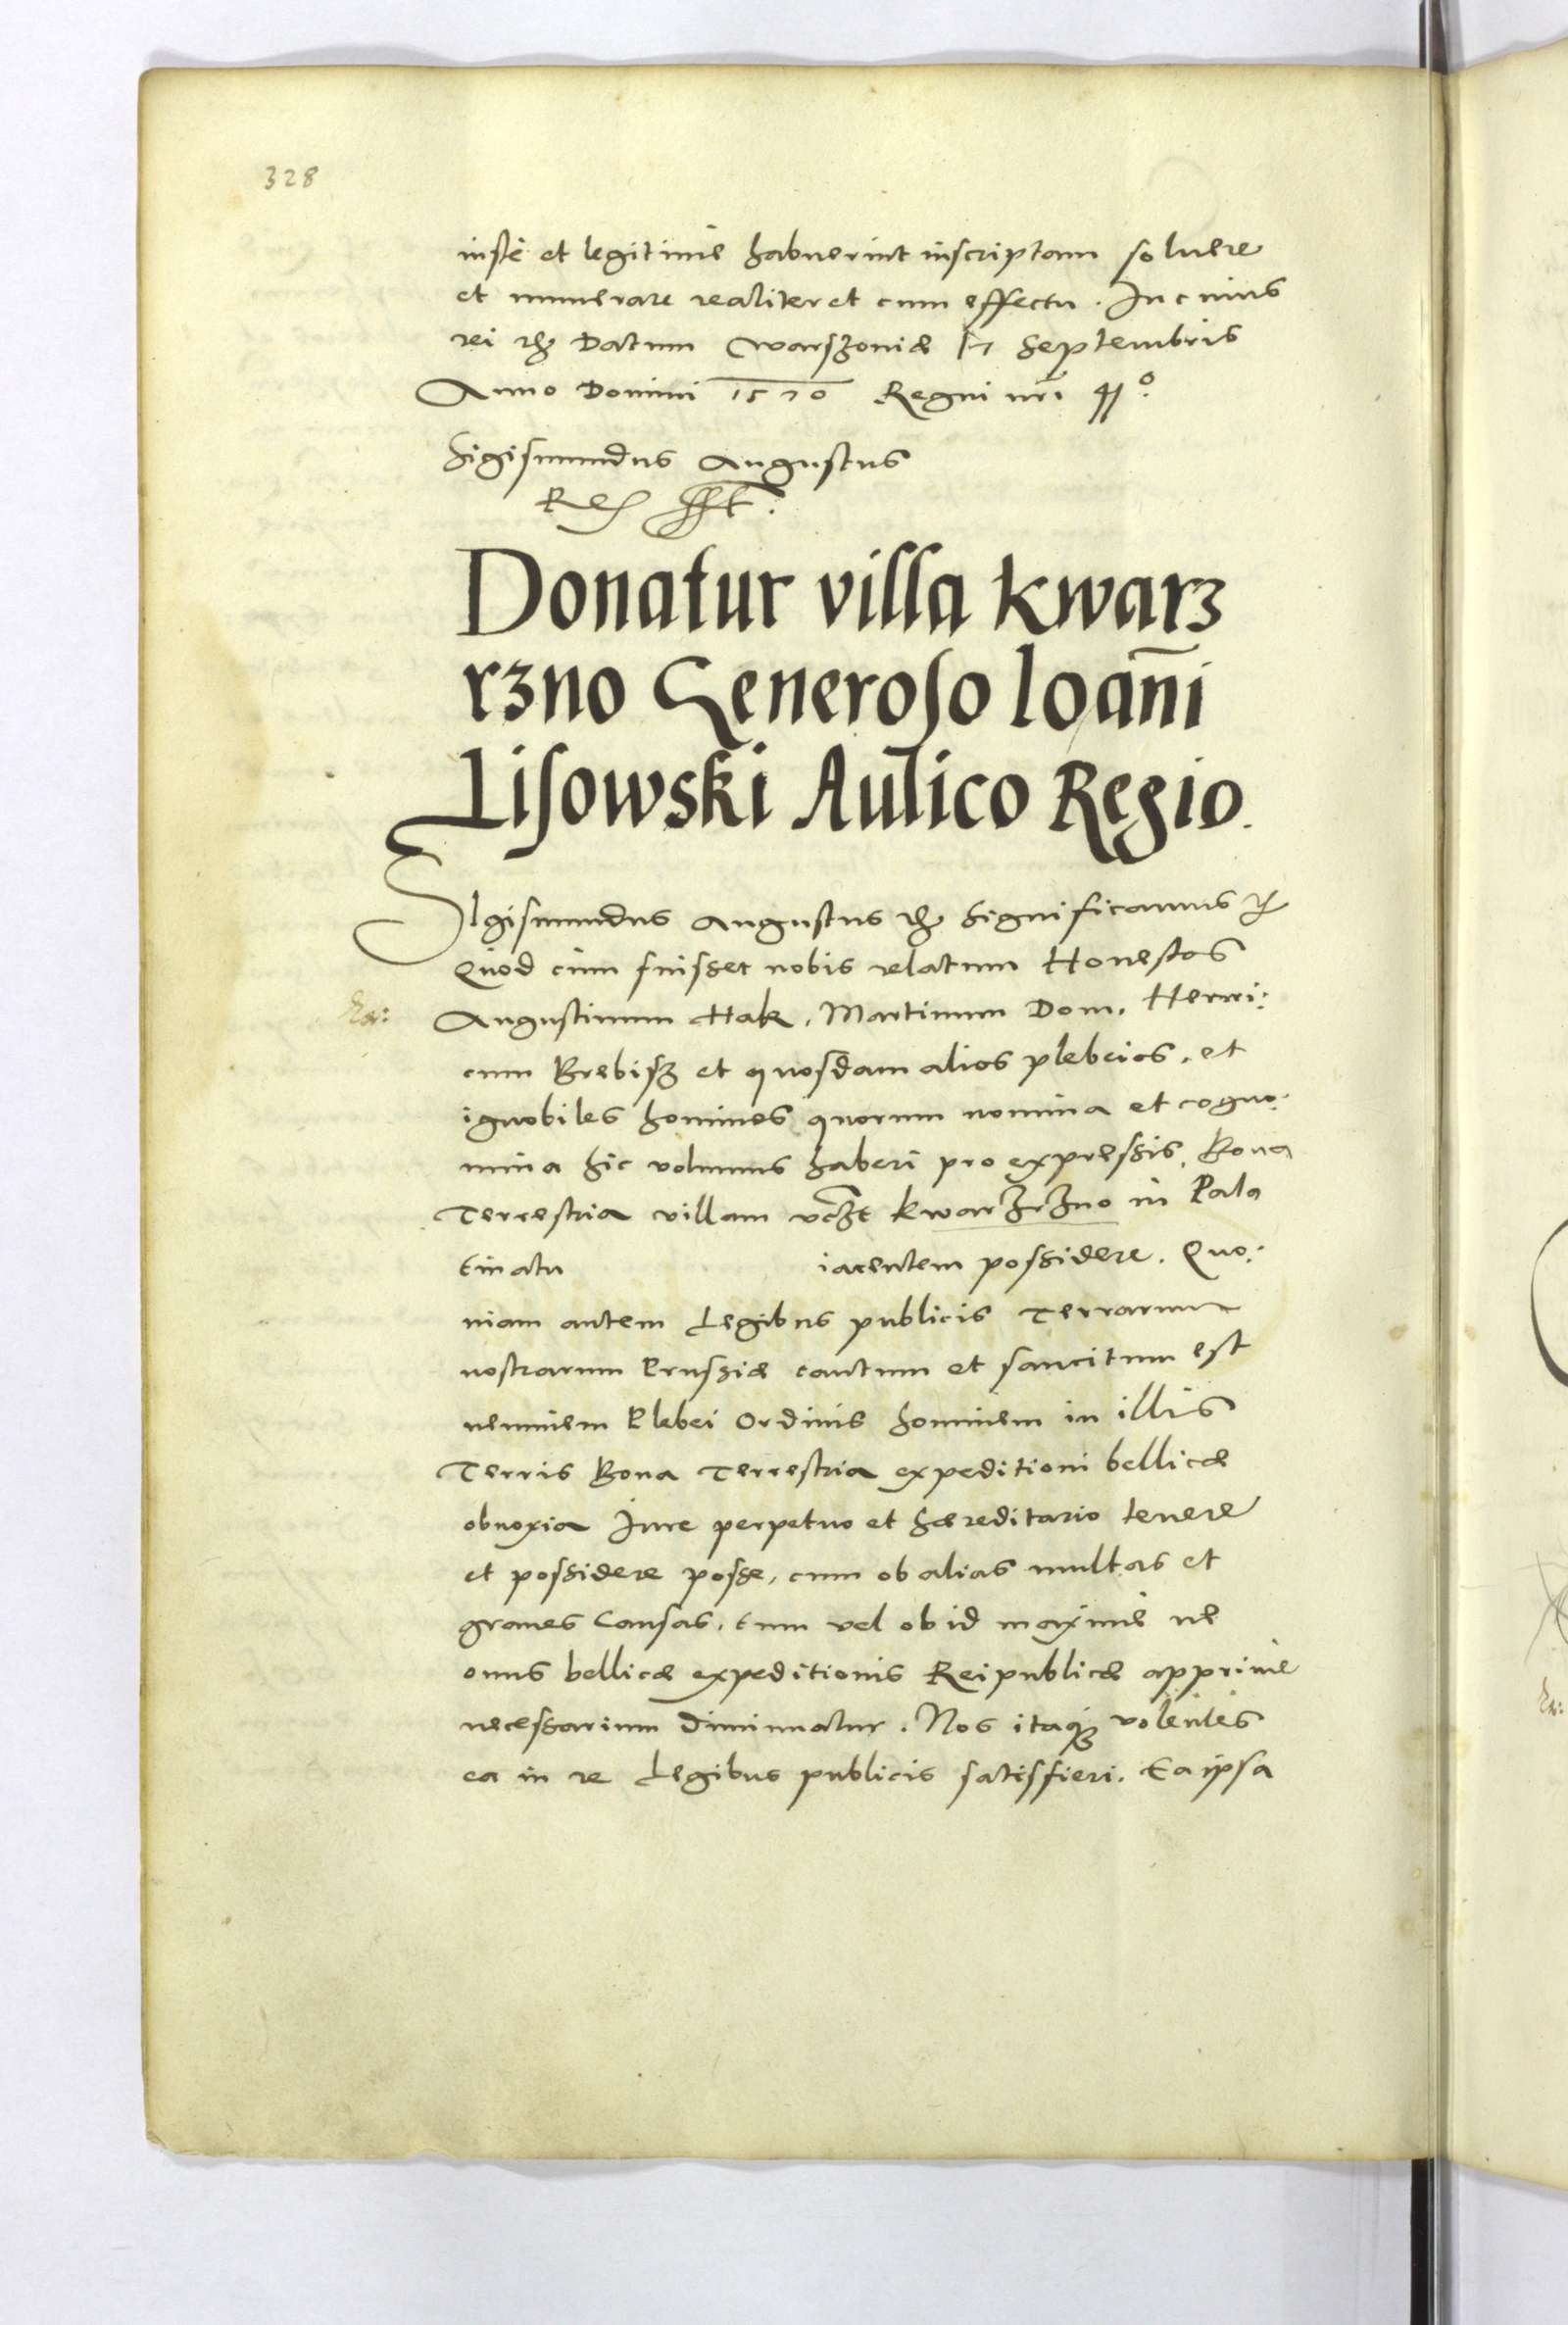 328
iustè et legitimè habuerint inscriptam soluere
et numerare realiter et cum effectu. In cuius
rei etc Datum Warszoviæ 17 Septembris
Anno Domini 1570 Regni nr̄i 41°
Sigismundus Augustus
Rex sst:
Donatur villa Kwarz
rzno Generoso Ioan̄i
Lisowski Aulico Regio.
SIgismundus Augustus etc Significamus etc
Quod cùm fuisset nobis relatum Honestos
Augustinum Hak, Martinum Dom, Henri:
cum Brebisz et quosdam alios plebeios, et
ignobiles homines quorum nomina et cogno:
mina hic volumus haberi pro expressis, Bona
Terrestria villam vczt KwarZrZno in Pala
tinatu iacentem possidere. Quo:
niam autem Legibus publicis Terrarum
nostrarum Prussiæ cautum et sancitum est
neminem Plebei Ordinis hominem in illis
Terris Bona Terrestria expeditioni bellicæ
obnoxia Iure perpetuo et hæreditario tenere
et possidere posse, cum ob alias multas et
graues Causas, tum vel ob id maximè ne
onus bellicæ expeditionis Reipublicæ apprimè
necessarium diminuatur. Nos itaq3 volentes
ea in re Legibus publicis satisfieri. Ea ipsa